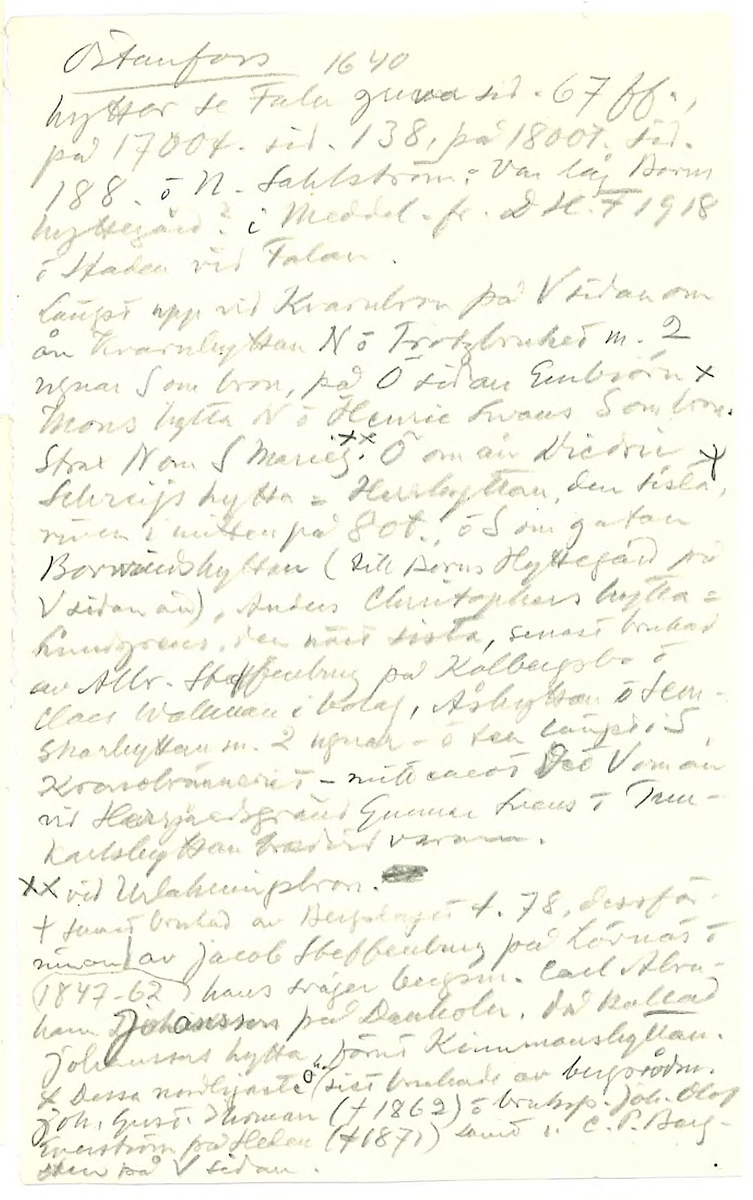 Östanfors 1640
hyttor se Falu gruva sid. 67 ff.,
på 1700t. sid. 138, på 1800t. sid.
188. ö N. Sahlström: Var låg Borns
hyttegård? i Meddel. fr. D H. F 1918
ö Staden vid Falan.
Längst upp vid Kvarnbron på V sidan om
ån Kvarnhyttan N ö Trotzbruket m. 2
ugnar S om bron, på Ö sidan Embiörn x
Mons hytta N ö Henric Svens S om bron.
Strax N om S Marieg. xx Ö om ån Diedric +
Schreijs hytta = Herrhyttan, den sista,
riven i mitten på 80t., ö S om gatan
Borwindshyttan (till Borns Hyttegård på
V sidan ån), Anders Christophers hytta =
Lundgrens, den näst sista, senast brukad
av Albr. Steffenburg på Kolbergsbo ö
Claes Wallman i bolag, Åshyttan ö Jem-
skarhyttan m. 2 ugnar - ö sen längst i S,
- mitt emot V om ån
vid Gunnar Svens ö Trum-
karlshyttan bredvid varann.
xx vid Urlakningsbron.
+ senast brukad av Bergslaget t. 78, dessför-
innan av Jacob Steffenburg på Lövnäs ö
(1847-62) hans svåger bergsm. Carl Abra-
ham Johansson på Danholn. Då kallad
Johanssons hytta, förut Kinmanshyttan.
x Dessa nordligaste Ö.. sist brukade av bergsrådm.
Joh. Gust. Thoman (+1862) ö bruksp. Joh. Olof
Enerström på Heden (+1871) samt v. C. P. Berg-
sten på V sidan.